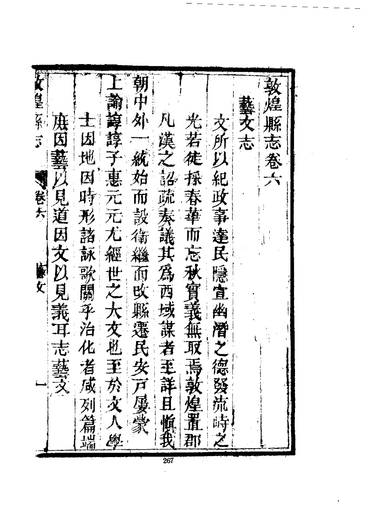 敦煌縣志卷六
藝文志
文所以紀政事達民隱宣幽潛之德發流峙之
光若徒採春華而忘秋實義無取焉敦煌置郡
凡漢之詔疏奏議其為西域謀者至詳且愼我
朝中外一統始而設衞繼而改縣遷民安戸屢蒙
上諭諄諄子惠元元尤經世之大文也至於文人學
士因地因時形諸詠歌關乎治化者咸列篇端
庶因藝以見道因文以見義耳志藝文
敦煌縣志
卷六
藝文
一
267